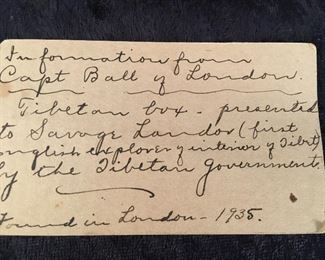 Information from
Capt Ball of London.
Tibetan box - presented
to Savage Landor (first
english explorer of interior of Tibet)
by the Tibetan Government.
Found in London - 1935.